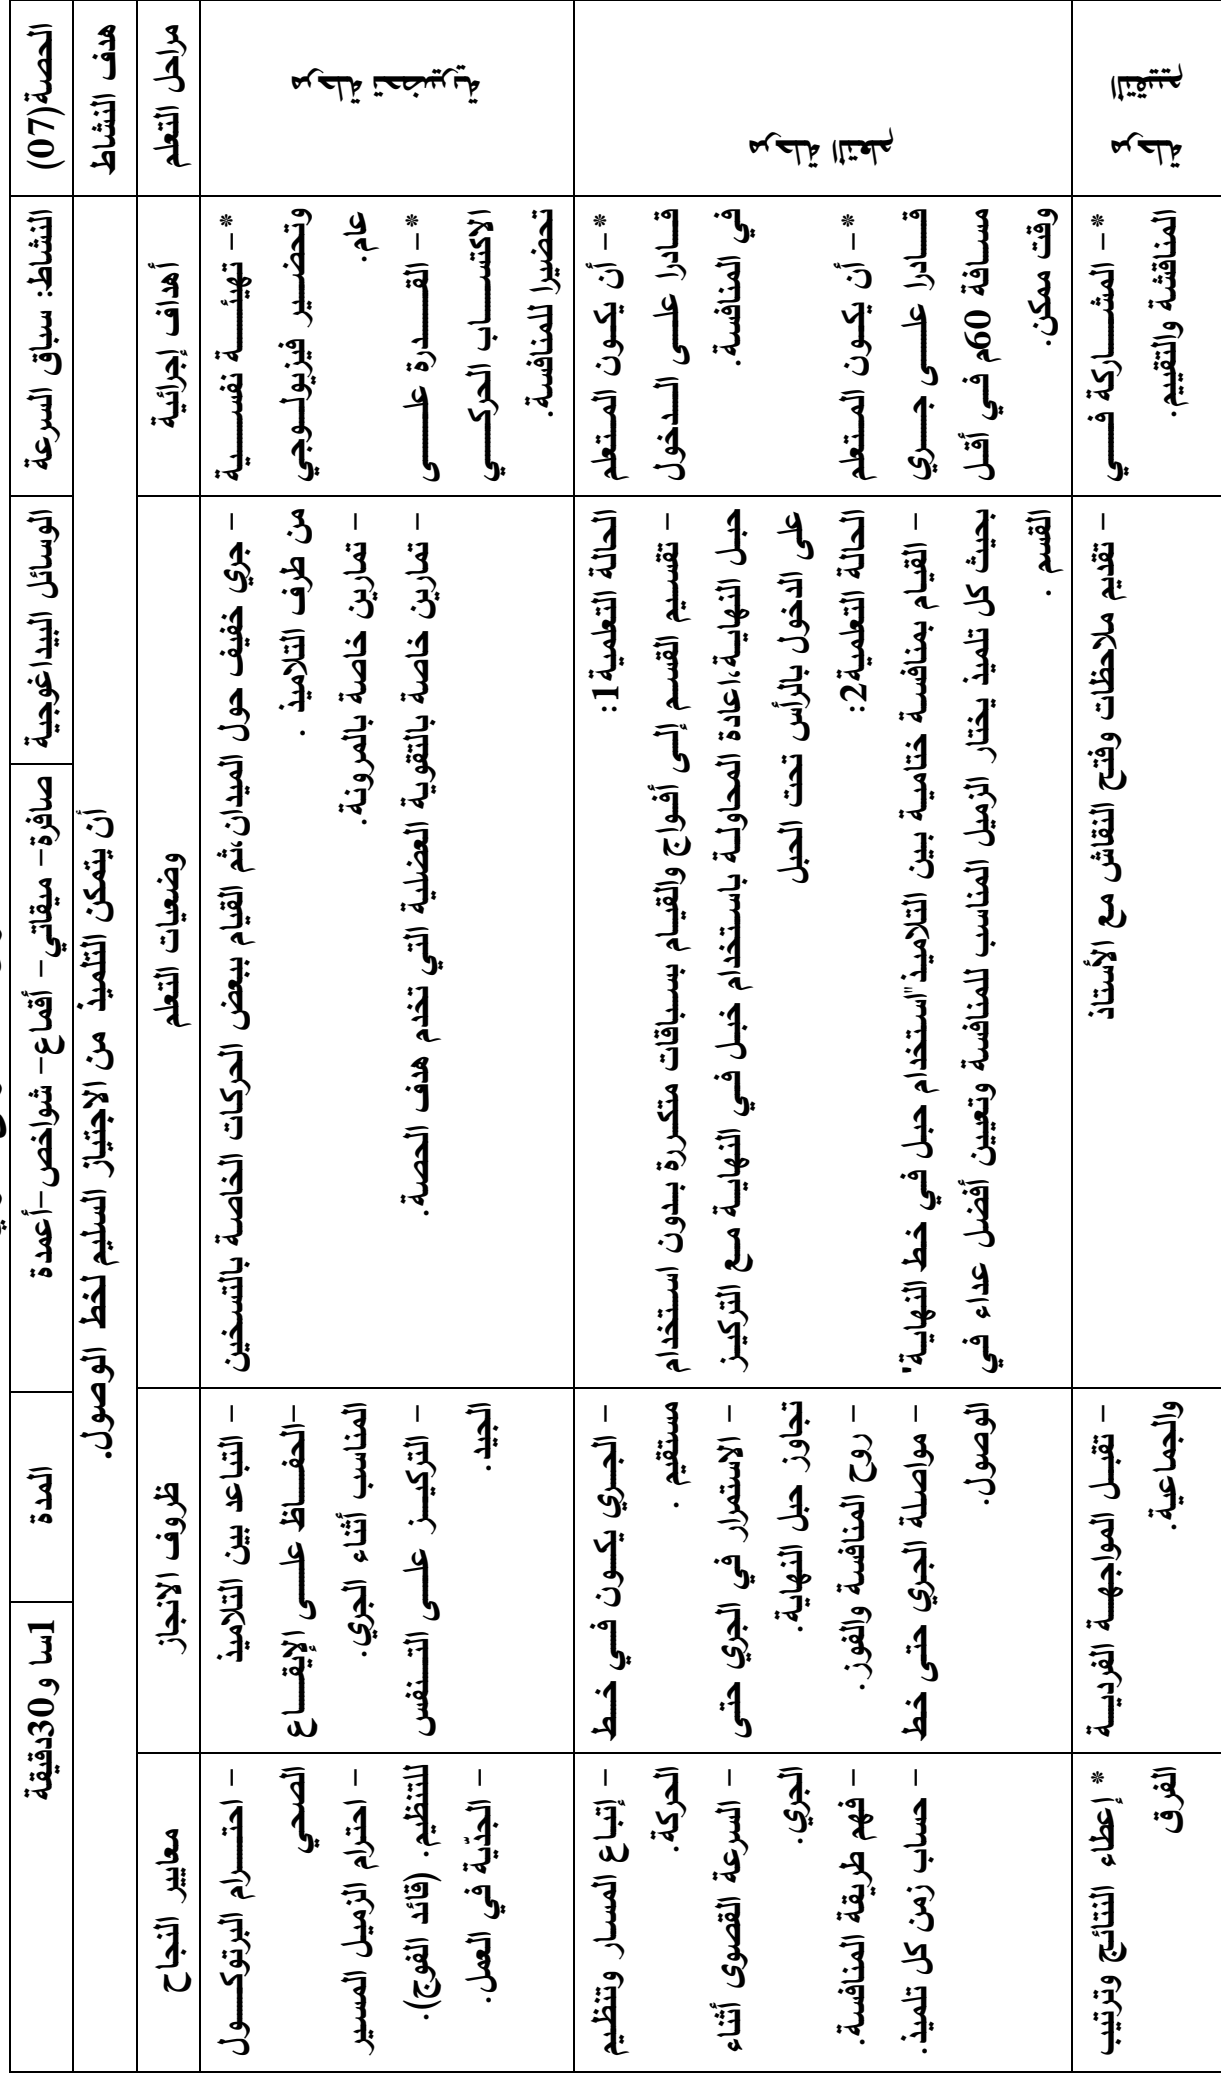 الحصة(07)
النشاط: سباق السرعة
الوسائل البيداغوجية
صافرة- ميقاتي- أقماع- شواخص-أعمدة
المدة
1سا و30دقيقة
هدف النشاط
أن يتمكن التلميذ من الاجتياز السليم لخط الوصول.
مراحل التعلم
أهداف إجرائية
وضعيات التعلم
ظروف الانجاز
معايير النجاح
مرحلة تحضيرية
*- تهيئة نفسية
وتحضير فيزيولوجي
عام.
*- القدرة على
الاكتساب الحركي
تحضيرا للمنافسة.
- جري خفيف حول الميدان،ثم القيام ببعض الحركات الخاصة بالتسخين
من طرف التلاميذ .
- تمارين خاصة بالمرونة.
- تمارين خاصة بالتقوية العضلية التي تخدم هدف الحصة.
- التباعد بين التلاميذ
-الحفاظ على الإيقاع
المناسب أثناء الجري.
- التركيز على التنفس
الجيد.
- احترام البرتوكول
الصحي
- احترام الزميل المسير
للتنظيم. (قائد الفوج).
- الجدّية في العمل.
مرحلة التعلم
*- أن يكون المتعلم
قادرا على الدخول
في المنافسة.
*- أن يكون المتعلم
قادرا على جري
مسافة 60م في أقل
وقت ممكن.
الحالة التعلمية1:
- تقسيم القسم إلى أفواج والقيام بسباقات متكررة بدون استخدام
حبل النهاية،اعادة المحاولة باستخدام خبل في النهاية مع التركيز
على الدخول بالرأس تحت الحبل
الحالة التعلمية2:
- القيام بمنافسة ختامية بين التلاميذ"استخدام حبل في خط النهاية"
بحيث كل تلميذ يختار الزميل المناسب للمنافسة وتعيين أفضل عداء في
القسم .
- الجري يكون في خط
مستقيم .
- الاستمرار في الجري حتى
تجاوز حبل النهاية.
- روح المنافسة والفوز.
- مواصلة الجري حتى خط
الوصول.
- إتباع المسار وتنظيم
الحركة.
- السرعة القصوى أثناء
الجري.
- فهم طريقة المنافسة.
- حساب زمن كل تلميذ.
مرحلة
التقييم
*- المشاركة في
المناقشة والتقييم.
- تقديم ملاحظات وفتح النقاش مع الأستاذ
- تقبل المواجهة الفردية
والجماعية.
* إعطاء النتائج وترتيب
الفرق